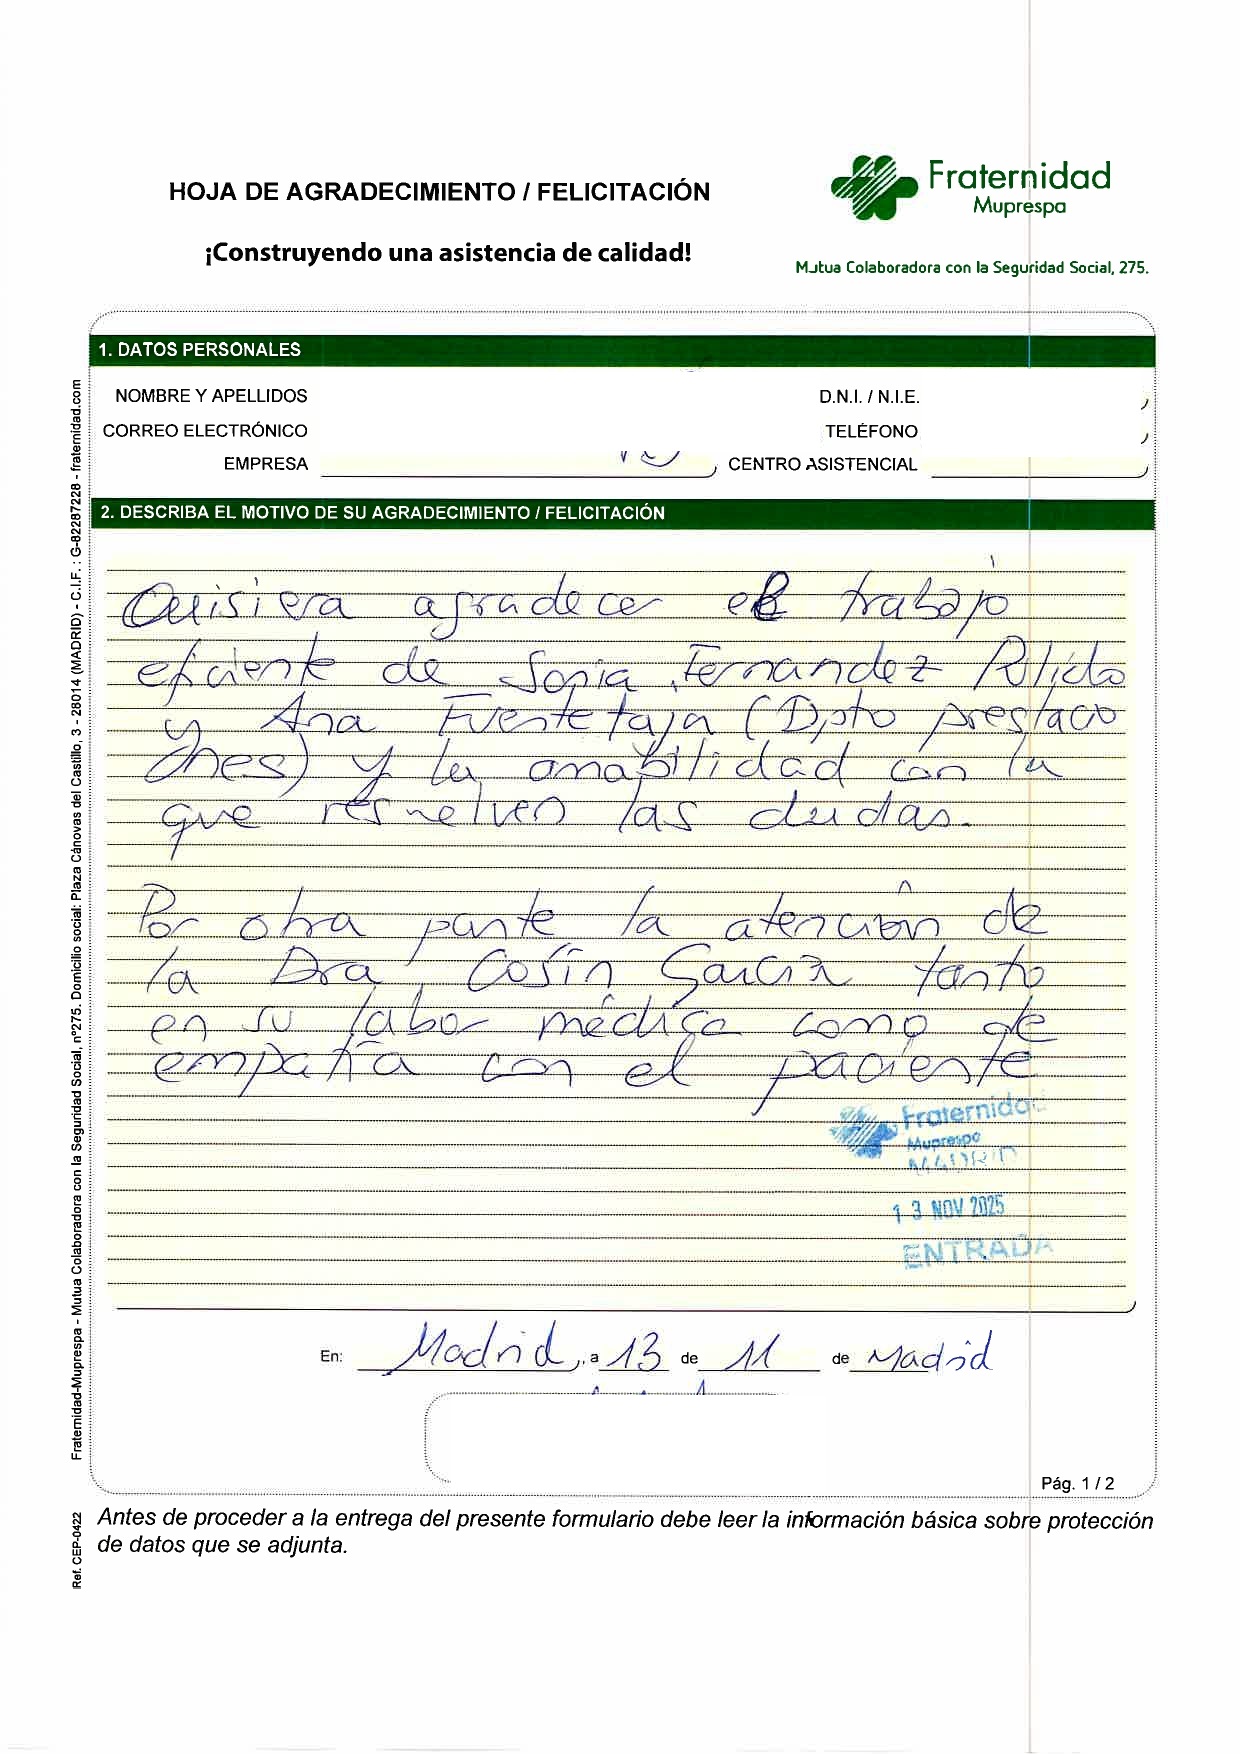 HOJA DE AGRADECIMIENTO / FELICITACIÓN
¡Construyendo una asistencia de calidad!
Fraternidad
Muprespa
Mutua Colaboradora con la Seguridad Social, 275.
1. DATOS PERSONALES
NOMBRE Y APELLIDOS
D.N.I. / N.I.E.
CORREO ELECTRÓNICO
TELÉFONO
EMPRESA
CENTRO ASISTENCIAL
2. DESCRIBA EL MOTIVO DE SU AGRADECIMIENTO / FELICITACIÓN
Quisiera agradecer el trabajo
eficiente de Sonia Fernandez Pulido
y Ana Fuentetaja (Dpto prestacio
ones) y la amabilidad con la
que resuelven las dudas.
Por otra parte la atención de
la Dra Cosín García tanto
en su labor médica como de
empatía con el paciente
Fraternidad
Muprespa
MADRID
13 NOV 2025
ENTRADA
En: Madrid, a 13 de 11 de Madrid
Pág. 1 / 2
Antes de proceder a la entrega del presente formulario debe leer la información básica sobre protección
de datos que se adjunta.
Fraternidad-Muprespa - Mutua Colaboradora con la Seguridad Social, nº275. Domicilio social: Plaza Cánovas del Castillo, 3 - 28014 (MADRID) - C.I.F. : G-82287228 - fraternidad.com
Ref. CEP-0422